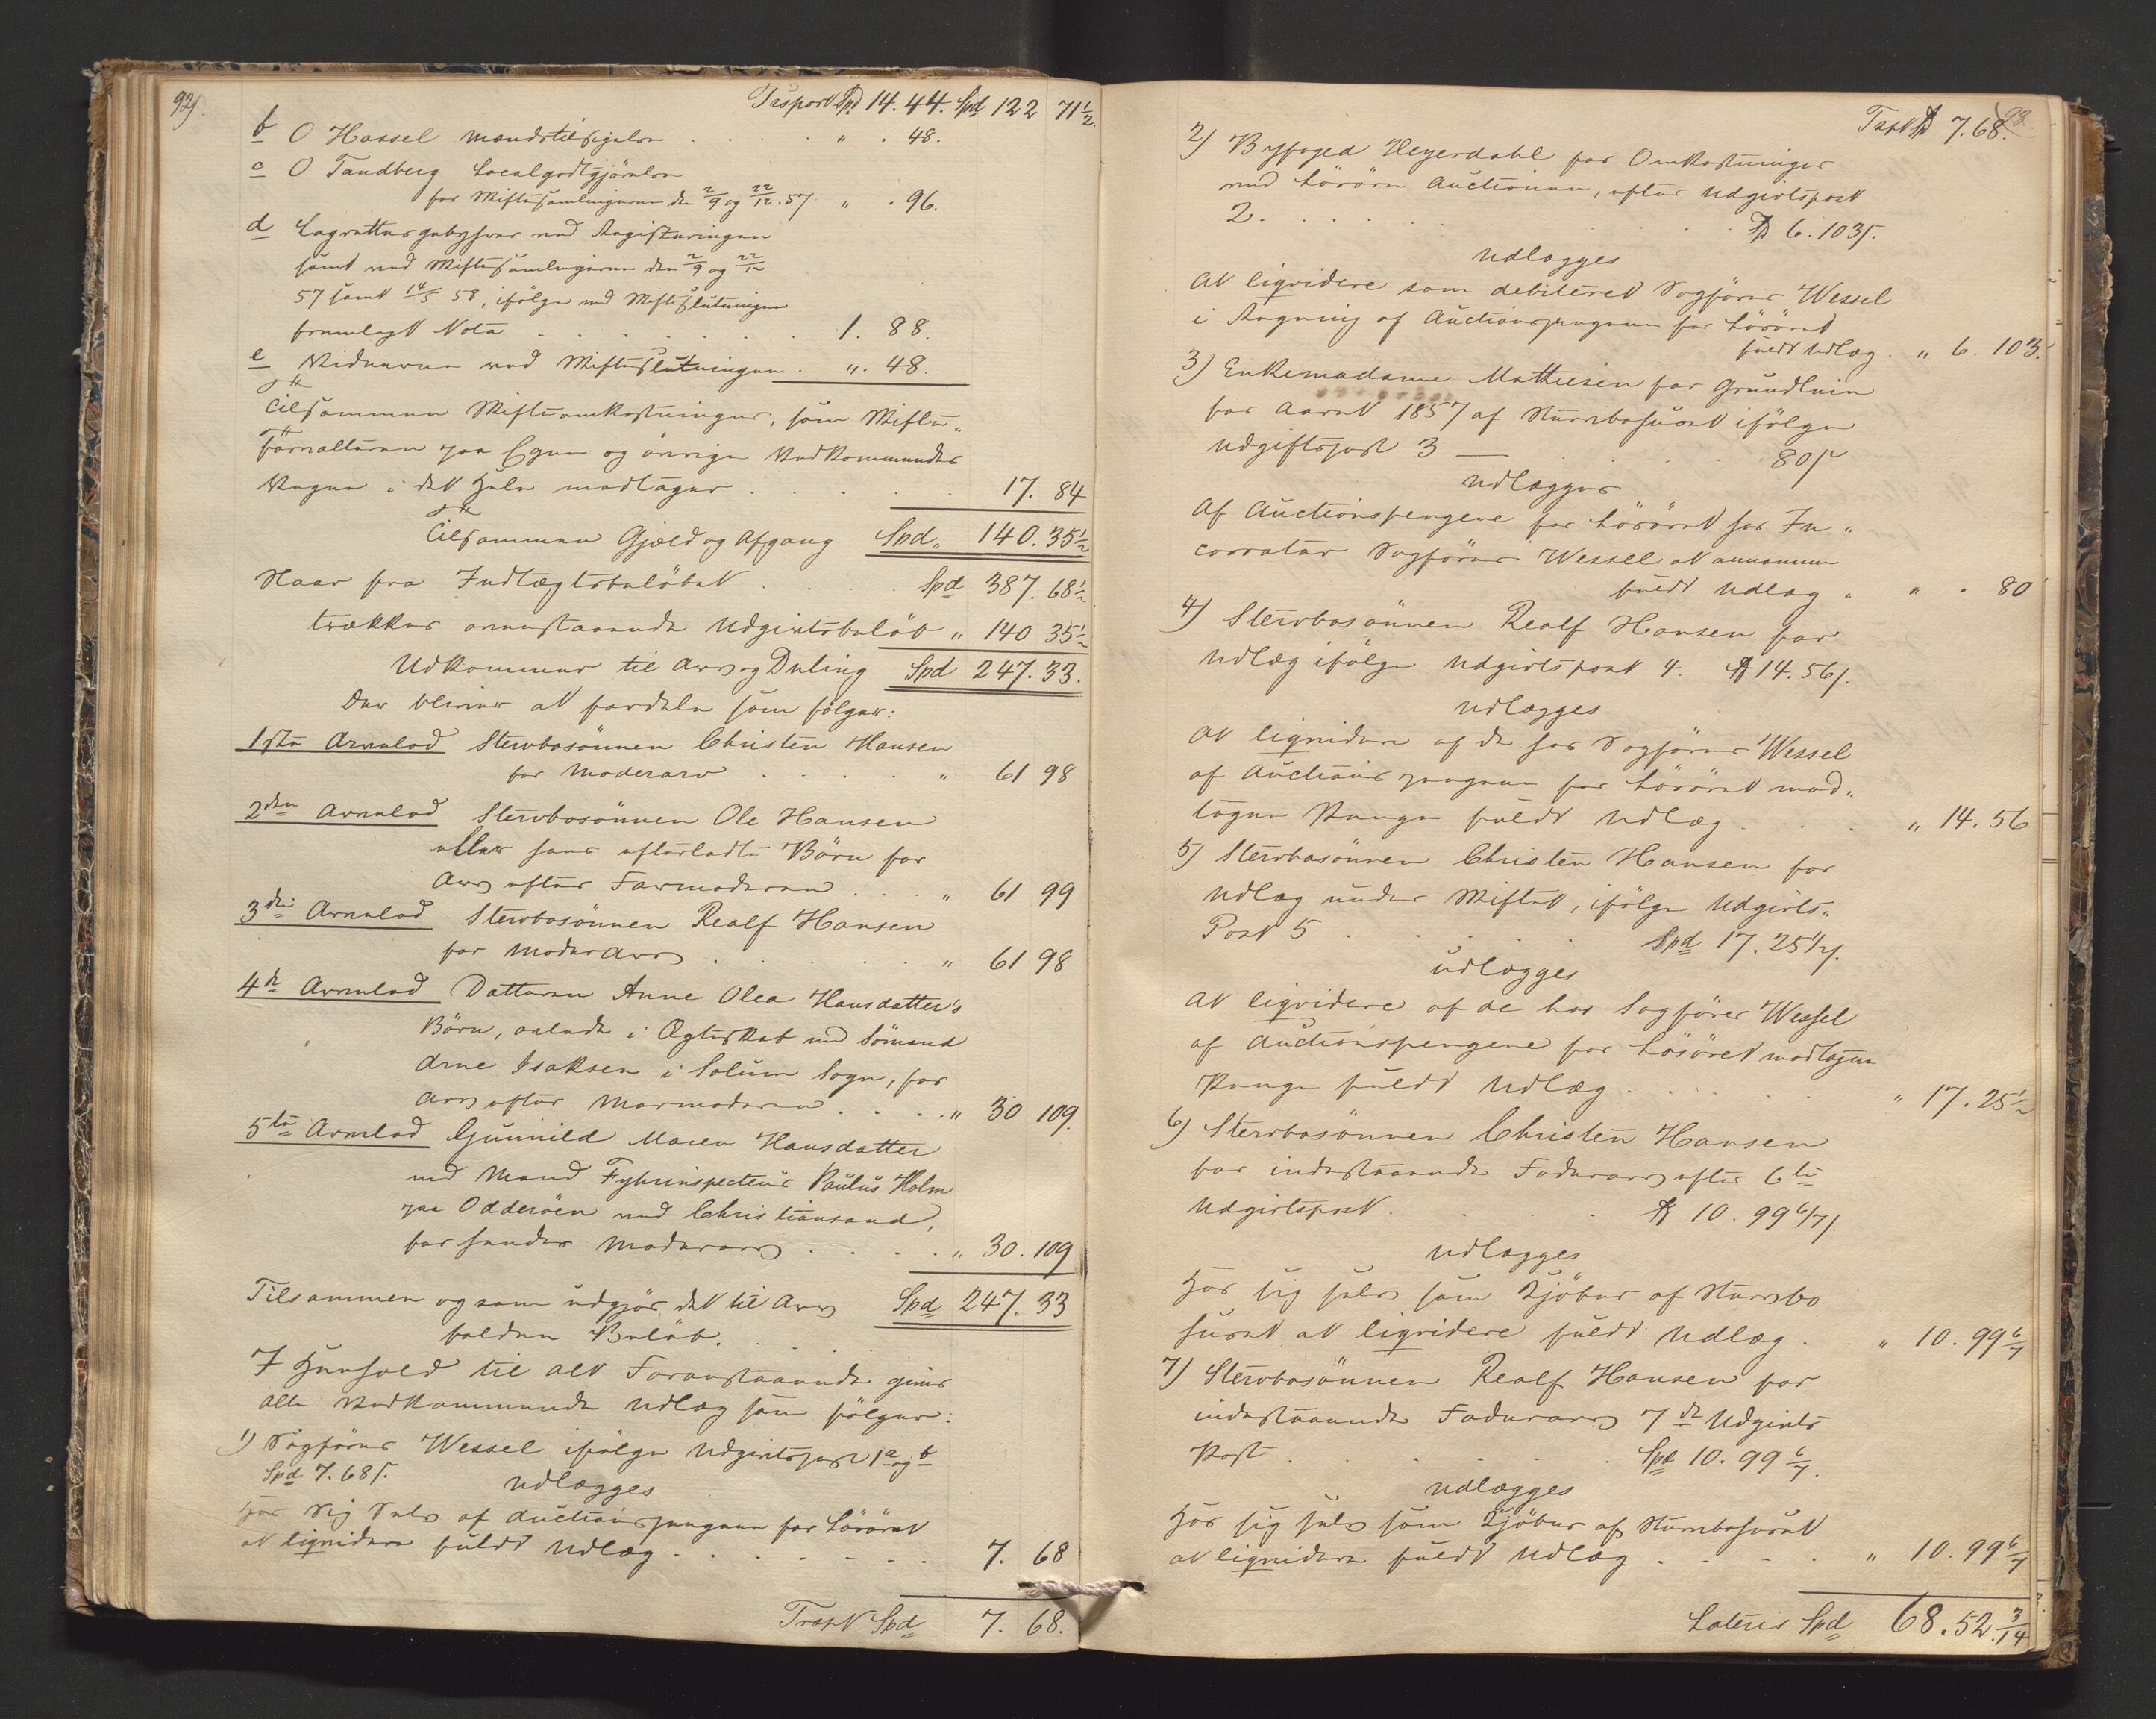 92).
Trsport Spd 14. 44. Spd 122 71½.
b O Hassel Mændstilsigelse . . . . " . 48.
c O Tandberg Localgodtgjörelse
for Skiftesamlingerne den 2/9 og 22/12. 57 " . 96.
d Lagrettesgebyhrer ved Registeringen
samt ved Skiftesamlingerne den 2/9 og 22/12
57 samt 14/5 58, ifölge ved Skifteslutningen
fremlagt Nota . . . . . . . 1. 88.
e Vidnerne ved Skifteslutningen . ". 48.
Tilsammen Skifteomkostninger, som Skifte„
forvalteren paa Egne og övrige Vedkommendes
Vegne i det Hele modtager . . . . . 17. 84
Tilsammen Gjæld og Afgang Spd„ 140. 35½
Naar fra Indtægtsbelöbet . . . . Spd 387. 68½
trækkes ovenstaaende Udgiftsbelöb „ 140 35½
Udkommer til Arv og Deling Spd 247. 33.
Der bliver at fordele som fölger:
1ste Arvelod Stervbosönnen Christen Hansen
for Moderarv . . . . . " 61 98
2den Arvelod Stervbosönnen Ole Hansen
eller hans efterladte Börn for
Arv efter Farmoderen . . . " 61 99
3die Arvelod Stervbosönnen Realf Hansen
for Moderarv . . . . . . " 61 98
4de Arvelod Datteren Anne Olea Hansdatter's
Börn, avlede i Ægteskab med Sömand
Arne Isaksen i Solum Sogn, for
Arv efter Mormoderen . . . . " 30 109.
5te Arvelod Gunnild Maren Hansdatter
med Mand Fyhrinspecteur Paulus Holm
paa Odderöen ved Christiansand,
for hendes Moderarv . . . . „ 30. 109
Tilsammen og som udgjör det til Arv Spd 247. 33
faldne Belöb. . . . .
I Henhold til alt Foranstaaende gives
alle Vedkommende Udlæg som fölger:
1) Sagförer Wessel ifölge Udgiftspost 1 a og b
Spd 7. 68ſ.
udlægges
Hos Sig Selv af Auctionspengene for Lösöret
at liqvidere fuldt Udlæg . . . . . . . 7. 68
Trspt Spd 7. 68.
Trspt Spd 7. 68.
93.
2) Byfoged Heyerdahl for Omkostninger
ved Lösöre Auctionen, efter Udgiftspost
2. . . . . . . . . Spd 6. 103ſ.
udlægges
At liqvidere som debiteret Sagförer Wessel
i Regning af Auctionspengene for Lösöret
fuldt Udlæg . " 6. 103.
3) Enkemadame Mathiesen for Grundleie
for Aaret 1857 af Stervbohuset ifölge
Udgiftspost 3 — . . . . 80ſ
udlægges
Af Auctionspengene for Lösöret hos In„
cassator Sagförer Wessel at annamme
fuldt Udlæg . " . 80
4) Stervbosönnen Realf Hansen for
Udlæg ifölge Udgiftspost 4. Spd 14. 56ſ.
udlægges
At liqvidere af de hos Sagförer Wessel
af Auctionspengene for Lösöret mod„
tagne Penge fuldt Udlæg . . . „ 14. 56
5) Stervbosönnen Christen Hansen for
Udlæg under Skiftet, ifölge Udgifts„
Post 5 . . . . . Spd 17. 25½ſ.
udlægges
At liqvidere af de hos Sagförer Wessel
af Auctionspengene for Lösöret modtagne
Penge fuldt Udlæg . . . . . " 17. 25½
6) Stervbosönnen Christen Hansen
for indestaaende Faderarv efter 6te
Udgiftspost . . . . . Spd 10. 99 6/7ſ.
udlægges
Hos sig selv som Kjöber af Stervbo
huset at liqvidere fuldt Udlæg . . " 10. 99 6/7
7) Stervbosönnen Realf Hansen for
indestaaende Faderarv 7de Udgifts
Post . . . . . . Spd 10. 99 6/7.
udlægges
Hos sig selv som Kjöber af Stervbohuset
at liqvidere fuldt Udlæg . . . . " 10. 99 6/7
Lateris Spd 68. 52. 3/14